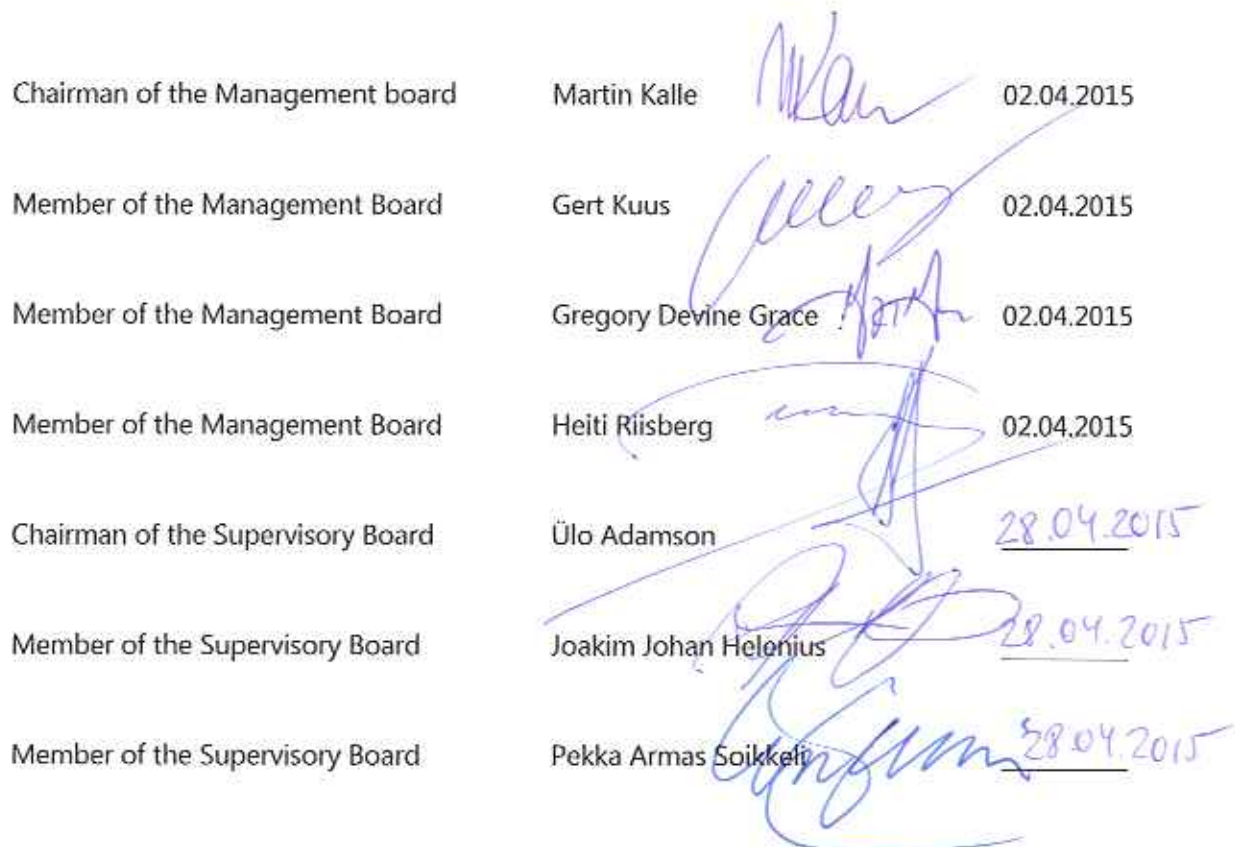 Chairman of the Management board Martin Kalle 02.04.2015
Member of the Management Board Gert Kuus 02.04.2015
Member of the Management Board Gregory Devine Grace 02.04.2015
Member of the Management Board Heiti Riisberg 02.04.2015
Chairman of the Supervisory Board Ülo Adamson 28.04.2015
Member of the Supervisory Board Joakim Johan Helenius 28.04.2015
Member of the Supervisory Board Pekka Armas Soikkeli 28.04.2015